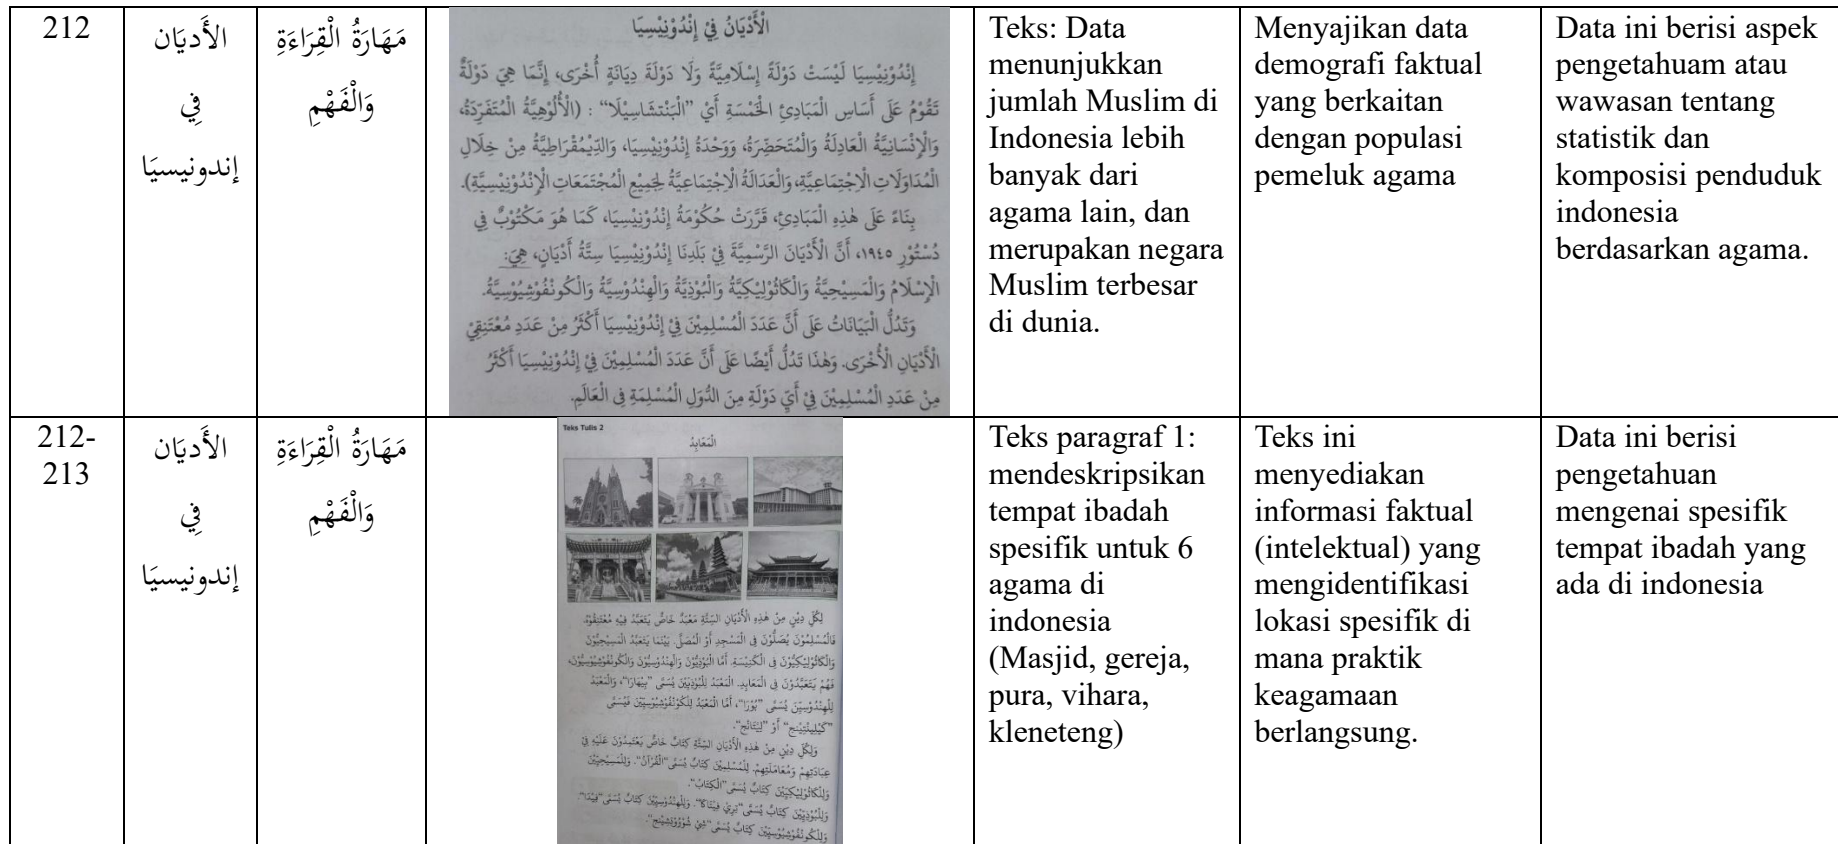 212
الأَديَان
فِي
إندونيسيَا
مَهَارَةُ الْقِرَاءَةِ
وَالْفَهْمِ
الْأَدْيَانُ فِيْ إِنْدُوْنِيْسِيَا
إِنْدُوْنِيْسِيَا لَيْسَتْ دَوْلَةً إِسْلَامِيَّةً وَلَا دَوْلَةَ دِيَانَةٍ أُخْرَى، إِنَّمَا هِيَ دَوْلَةٌ
تَقُوْمُ عَلَى أَسَاسِ الْمَبَادِئِ الْخَمْسَةِ أَيْ "الْبَنْتشَاسِيْلَا" : (الْأُلُوْهِيَّةُ الْمُتَفَرِّدَةُ،
وَالْإِنْسَانِيَّةُ الْعَادِلَةُ وَالْمُتَحَضِّرَةُ، وَوَحْدَةُ إِنْدُوْنِيْسِيَا، وَالدِّيْمُقْرَاطِيَّةُ مِنْ خِلَالِ
الْمُدَاوَلَاتِ الْاِجْتِمَاعِيَّةِ، وَالْعَدَالَةُ الْاِجْتِمَاعِيَّةُ لِجَمِيْعِ الْمُجْتَمَعَاتِ الْإِنْدُوْنِيْسِيَّةِ).
بِنَاءً عَلَى هٰذِهِ الْمَبَادِئِ، قَرَّرَتْ حُكُوْمَةُ إِنْدُوْنِيْسِيَا، كَمَا هُوَ مَكْتُوْبٌ فِي
دُسْتُوْرِ ١٩٤٥، أَنَّ الْأَدْيَانَ الرَّسْمِيَّةَ فِيْ بَلَدِنَا إِنْدُوْنِيْسِيَا سِتَّةُ أَدْيَانٍ، هِيَ:
الْإِسْلَامُ وَالْمَسِيْحِيَّةُ وَالْكَاثُوْلِيْكِيَّةُ وَالْبُوْذِيَّةُ وَالْهِنْدُوْسِيَّةُ وَالْكُوْنْفُوْشِيُوْسِيَّةُ.
وَتَدُلُّ الْبَيَانَاتُ عَلَى أَنَّ عَدَدَ الْمُسْلِمِيْنَ فِيْ إِنْدُوْنِيْسِيَا أَكْثَرُ مِنْ عَدَدِ مُعْتَنِقِيْ
الْأَدْيَانِ الْأُخْرَى. وَهٰذَا تَدُلُّ أَيْضًا عَلَى أَنَّ عَدَدَ الْمُسْلِمِيْنَ فِيْ إِنْدُوْنِيْسِيَا أَكْثَرُ
مِنْ عَدَدِ الْمُسْلِمِيْنَ فِيْ أَيِّ دَوْلَةٍ مِنَ الدُّوَلِ الْمُسْلِمَةِ فِي الْعَالَمِ.
Teks: Data
menunjukkan
jumlah Muslim di
Indonesia lebih
banyak dari
agama lain, dan
merupakan negara
Muslim terbesar
di dunia.
Menyajikan data
demografi faktual
yang berkaitan
dengan populasi
pemeluk agama
Data ini berisi aspek
pengetahuam atau
wawasan tentang
statistik dan
komposisi penduduk
indonesia
berdasarkan agama.
212-
213
الأَديَان
فِي
إندونيسيَا
مَهَارَةُ الْقِرَاءَةِ
وَالْفَهْمِ
Teks Tulis 2
الْمَعَابِدُ
لِكُلِّ دِيْنٍ مِنْ هٰذِهِ الْأَدْيَانِ السِّتَّةِ مَعْبَدٌ خَاصٌّ يَتَعَبَّدُ فِيْهِ مُعْتَنِقُوْهُ.
فَالْمُسْلِمُوْنَ يُصَلُّوْنَ فِي الْمَسْجِدِ أَوْ الْمُصَلَّى. بَيْنَمَا يَتَعَبَّدُ الْمَسِيْحِيُّوْنَ
وَالْكَاثُوْلِيْكِيُّوْنَ فِي الْكَنِيْسَةِ. أَمَّا الْبُوْذِيُّوْنَ وَالْهِنْدُوْسِيُّوْنَ وَالْكُوْنْفُوْشِيُوْسِيُّوْنَ،
فَهُمْ يَتَعَبَّدُوْنَ فِي الْمَعَابِدِ. الْمَعْبَدُ لِلْبُوْذِيِّيْنَ يُسَمَّى "بِيْهَارَا"، وَالْمَعْبَدُ
لِلْهِنْدُوْسِيِّيْنَ يُسَمَّى "بُوْرَا"، أَمَّا الْمَعْبَدُ لِلْكُوْنْفُوْشِيُوْسِيِّيْنَ فَيُسَمَّى
"كَيْلِيْنْتِيْنج" أَوْ "لِيْتَانْج".
وَلِكُلِّ دِيْنٍ مِنْ هٰذِهِ الْأَدْيَانِ السِّتَّةِ كِتَابٌ خَاصٌّ يَعْتَمِدُوْنَ عَلَيْهِ فِيْ
عِبَادَتِهِمْ وَمُعَامَلَتِهِمْ. لِلْمُسْلِمِيْنَ كِتَابٌ يُسَمَّى "الْقُرْآنُ". وَلِلْمَسِيْحِيِّيْنَ
وَلِلْكَاثُوْلِيْكِيِّيْنَ كِتَابٌ يُسَمَّى "الْكِتَابُ".
وَلِلْبُوْذِيِّيْنَ كِتَابٌ يُسَمَّى "تِرِيْ فِيْتَاكَا". وَلِلْهِنْدُوْسِيِّيْنَ كِتَابٌ يُسَمَّى "فِيْدَا".
وَلِلْكُوْنْفُوْشِيُوْسِيِّيْنَ كِتَابٌ يُسَمَّى
Teks paragraf 1:
mendeskripsikan
tempat ibadah
spesifik untuk 6
agama di
indonesia
(Masjid, gereja,
pura, vihara,
kleneteng)
Teks ini
menyediakan
informasi faktual
(intelektual) yang
mengidentifikasi
lokasi spesifik di
mana praktik
keagamaan
berlangsung.
Data ini berisi
pengetahuan
mengenai spesifik
tempat ibadah yang
ada di indonesia